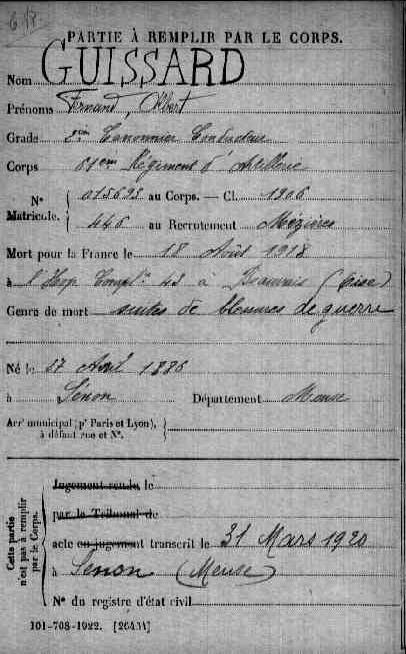 PARTIE À REMPLIR PAR LE CORPS.
Nom GUISSARD
Prénoms Fernand, Albert
Grade 2ème Canonnier Conducteur
Corps 61em Régiment d'Artillerie
N° Matricule. 015695 au Corps. — Cl. 1906
446 au Recrutement Mézières
Mort pour la France le 18 Août 1918
à l'Hop. Compl. 43 à Beauvais (Oise)
Genre de mort suites de blessures de guerre
Né le 27 Avril 1886
à Senon Département Meuse
Arrt municipal (pr Paris et Lyon),
à défaut rue et N°.
Cette partie n'est pas à remplir par le Corps.
Jugement rendu le
par le Tribunal de
acte ou jugement transcrit le 31 Mars 1920
à Senon (Meuse)
N° du registre d'état civil
101-708-1922. [26434]